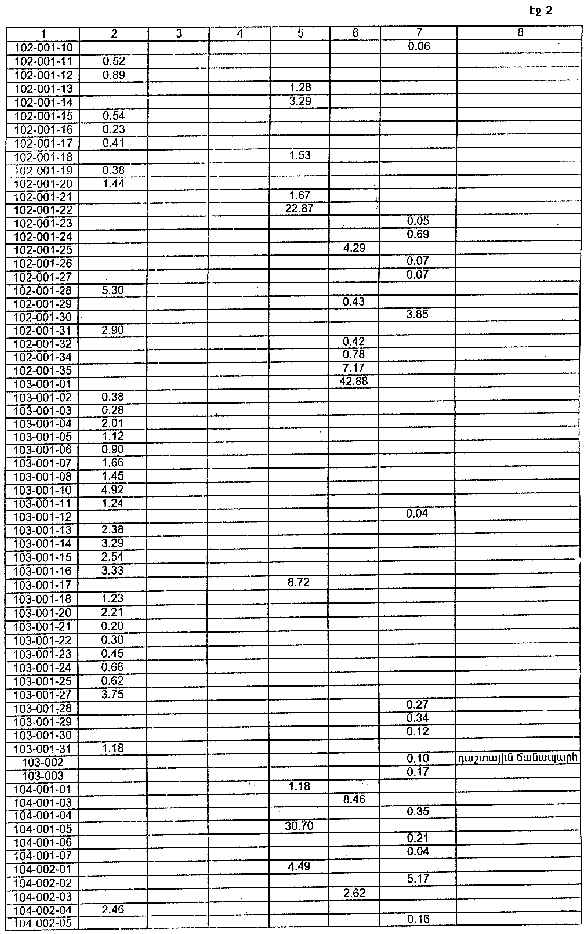 էջ 2
1 2 3 4 5 6 7 8
102-001-10 0.06
102-001-11 0.52
102-001-12 0.89
102-001-13 1.28
102-001-14 3.29
102-001-15 0.54
102-001-16 0.23
102-001-17 0.41
102-001-18 1.53
102-001-19 0.38
102-001-20 1.44
102-001-21 1.67
102-001-22 22.87
102-001-23 0.05
102-001-24 0.69
102-001-25 4.29
102-001-26 0.07
102-001-27 0.07
102-001-28 5.30
102-001-29 0.43
102-001-30 3.85
102-001-31 2.90
102-001-32 0.42
102-001-34 0.78
102-001-35 7.17
103-001-01 42.88
103-001-02 0.38
103-001-03 0.28
103-001-04 2.01
103-001-05 1.12
103-001-06 0.90
103-001-07 1.66
103-001-08 1.45
103-001-10 4.92
103-001-11 1.24
103-001-12 0.04
103-001-13 2.38
103-001-14 3.29
103-001-15 2.54
103-001-16 3.33
103-001-17 8.72
103-001-18 1.23
103-001-20 2.21
103-001-21 0.20
103-001-22 0.30
103-001-23 0.45
103-001-24 0.66
103-001-25 0.62
103-001-27 3.75
103-001-28 0.27
103-001-29 0.34
103-001-30 0.12
103-001-31 1.18
103-002 0.10 դաշտային ճանապարհ
103-003 0.17
104-001-01 1.18
104-001-03 8.46
104-001-04 0.35
104-001-05 30.70
104-001-06 0.21
104-001-07 0.04
104-002-01 4.49
104-002-02 5.17
104-002-03 2.62
104-002-04 2.46
104-002-05 0.16